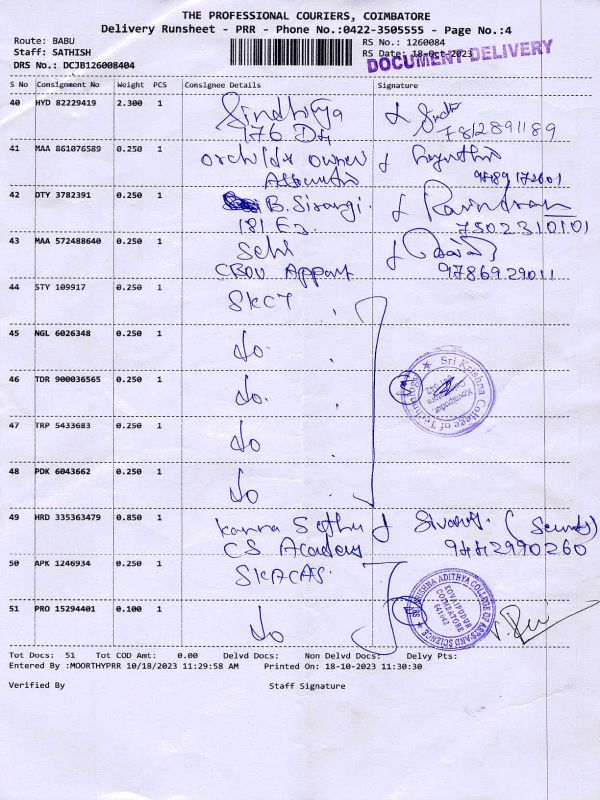 THE PROFESSIONAL COURIERS, COIMBATORE
Delivery Runsheet - PRR - Phone No.:0422-3505555 - Page No.:4
Route: BABU
RS No.: 1260084
Staff: SATHISH
RS Date: 18-Oct-2023
DRS No.: DCJB126008404
DOCUMENT DELIVERY
S No Consignment No Weight PCS Consignee Details Signature
40 HYD 82229419 2.300 1 Sindhiya
176 D4
7812891189
41 MAA 861076589 0.250 1 orchidex owner
42 DTY 3782391 0.250 1 B. Sivangi. Ravindran
181 E3 7502310101
43 MAA 572488640 0.250 1 Selvi
CBOU Appart 9786929011
44 STY 109917 0.250 1 SKCT
45 NGL 6026348 0.250 1 do.
46 TDR 900036565 0.250 1 do.
Sri Krishna College of Technology
Kovaipudur
Coimbatore
641 042
47 TRP 5433683 0.250 1 do
48 PDK 6043662 0.250 1 do
49 HRD 335363479 0.850 1 Kanna Sethu
CS Academy 9442990260
50 APK 1246934 0.250 1 SKACAS
SRI KRISHNA ADITHYA COLLEGE OF ARTS AND SCIENCE
KOVAIPUDUR
COIMBATORE
641042
51 PRO 15294401 0.100 1 do
Tot Docs: 51 Tot COD Amt: 0.00 Delvd Docs: Non Delvd Docs: Delvy Pts:
Entered By :MOORTHYPRR 10/18/2023 11:29:58 AM Printed On: 18-10-2023 11:30:30
Verified By Staff Signature